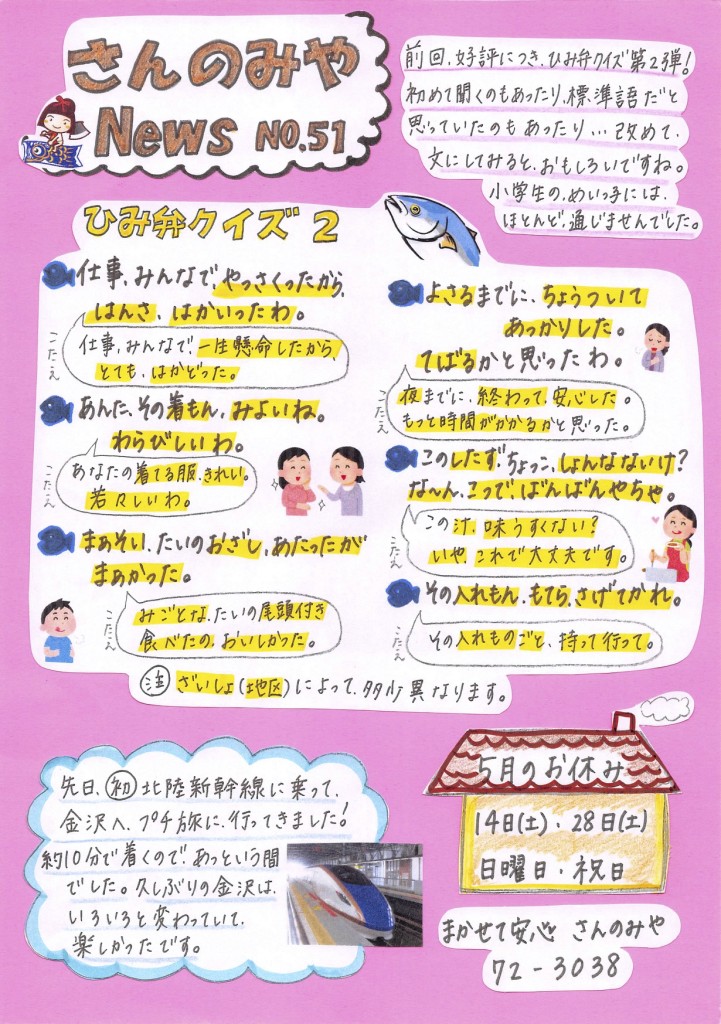 さんのみや
News NO.51
前回、好評につき、ひみ弁クイズ第2弾!
初めて聞くのもあったり、標準語だと
思っていたのもあったり…改めて、
文にしてみると、おもしろいですね。
小学生の、めいっ子には、
ほとんど、通じませんでした。
ひみ弁クイズ2
仕事、みんなで、やっさくったから、
はんさ、はかいったわ。
こたえ
仕事、みんなで、一生懸命したから、
とても、はかどった。
あんた、その着もん、みよいね。
わらびしいわ。
こたえ
あなたの着てる服、きれい。
若々しいわ。
まぁそい、たいのおざし、あたったが
まぁかった。
こたえ
みごとな、たいの尾頭付き
食べたの、おいしかった。
よさるまでに、ちょうついて
あっかりした。
てばるかと思ったわ。
こたえ
夜までに、終わって、安心した。
もっと時間がかかるかと思った。
このしたず、ちょっこ、しょんなないけ?
な〜ん、こって、ばんばんやちゃ。
こたえ
この汁、味うすくない?
いや、これで大丈夫です。
その入れもん、もてら、さげてかれ。
こたえ
その入れものごと、持って行って。
注 ざいしょ(地区)によって、多少異なります。
先日、初北陸新幹線に乗って、
金沢へ、プチ旅に、行ってきました!
約10分で着くので、あっという間
でした。久しぶりの金沢は、
いろいろと変わっていて、
楽しかったです。
5月のお休み
14日(土)・28日(土)
日曜日・祝日
まかせて安心 さんのみや
72-3038